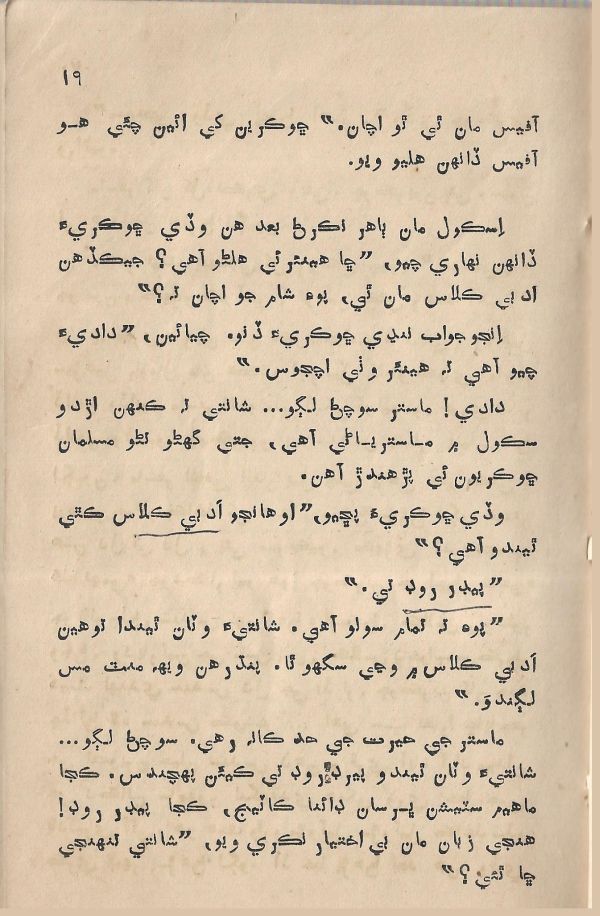 ١٩
آفيس مان ئي ٿو اچان.” ڇوڪرين کي ائين چئي هو
آفيس ڏانهن هليو ويو.
اِسڪول مان ٻاهر نڪرڻ بعد هن وڏي ڇوڪريءَ
ڏانهن نهاري چيو, ”ڇا هينئر ئي هلڻو آهي؟ جيڪڏهن
ادبي ڪلاس مان ٿي, پوءِ شام جو اچان ته؟”
اِنجو جواب ننڍي ڇوڪريءَ ڏنو. چيائين, ”داديءَ
چيو آهي ته هينئر وٺي اچجوس.”
دادي! ماستر سوچڻ لڳو... شانتي ته ڪنهن اڙدو
سڪول ۾ ماسترياڻي آهي, جتي گهڻو ڪو مسلمان
ڇوڪريون ئي پڙهندڙ آهن.
وڏي ڇوڪريءَ پڇيو, ”اوهانجو اَدبي ڪلاس ڪٿي
ٿيندو آهي؟”
”پيڊر روڊ تي.”
”پوءِ ته تمام سولو آهي. شانتيءَ وٽان ٿيندا توهين
اَدبي ڪلاس ۾ وڃي سگهو ٿا. پندرهن ويهه منٽ مس
لڳندوَ.”
ماستر جي حيرت جي حد ڪانه رهي. سوچڻ لڳو...
شانتيءَ وٽان ٿيندو پيڊر روڊ تي ڪيئن پهچندس. ڪجا
ماهيم سٽيشن ڀرسان ڊائنا ڪاٽيج, ڪجا پيڊر روڊ!
هنجي زبان مان بي اختيار نڪري ويو, ”شانتي تنهنجي
ڇا ٿئي؟”